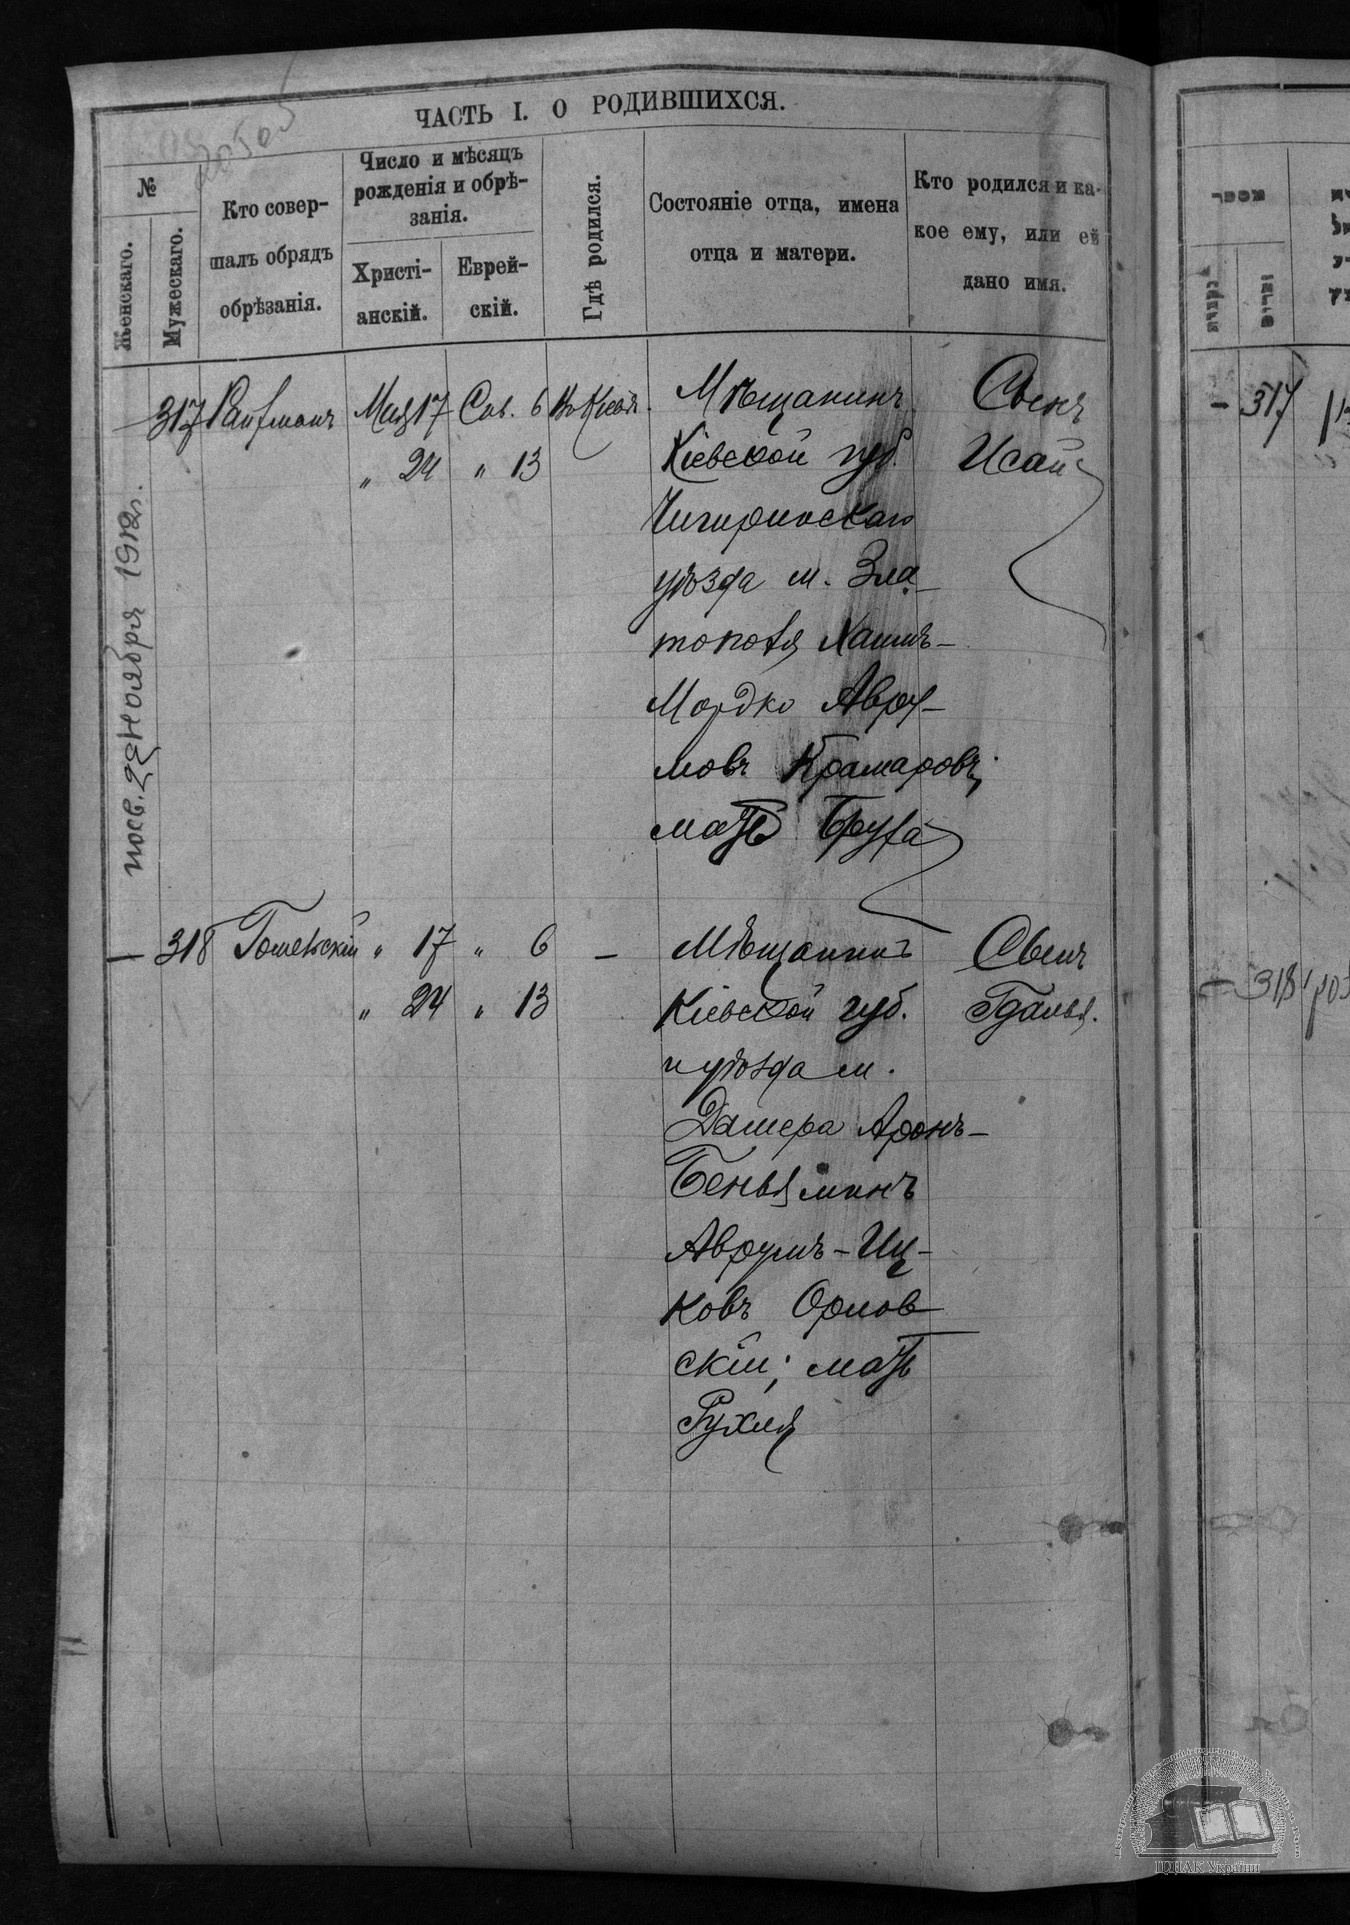 ЧАСТЬ I. О РОДИВШИХСЯ.
№
Женскаго.
Мужескаго.
Кто совер-
шалъ обрядъ
обрѣзанія.
Число и мѣсяцъ
рожденія и обрѣ-
занія.
Христі-
анскій.
Еврей-
скій.
Гдѣ родился.
Состояніе отца, имена
отца и матери.
Кто родился и ка-
кое ему, или ей
дано имя.
317 Кауфманъ Мая 17 Сив. 6 Въ Кіевѣ.
„ 24 „ 13
Мѣщанинъ
Кіевской губ.
Чигиринскаго
уѣзда м. Зла-
тополя Хаимъ-
Мордко Авру-
мовъ Крамаровъ;
мать Бруха
Сынъ
Исай
посв. 22 Ноября 1912г.
— 318 „ 17 „ 6 —
„ 24 „ 13
Мѣщанинъ
Кіевской губ.
и уѣзда м.
Дымера Аронъ-
Беньяминъ
Аврумъ-Иц-
ковъ Орлов
скій; мать
Рухля
Сынъ
Гдалья.
— 317
— 318
ЦДІАК України